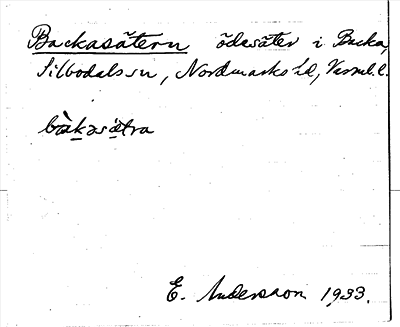 Backasätern ödesäter i Backa,
Silbodals sn, Nordmarks hd, Värml. l.
bàkəsætra
E. Andersson 1933.